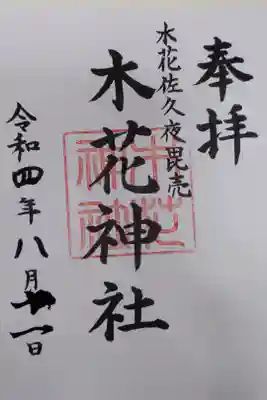 奉拝
木花佐久夜毘売
木花神社
令和四年八月十一日